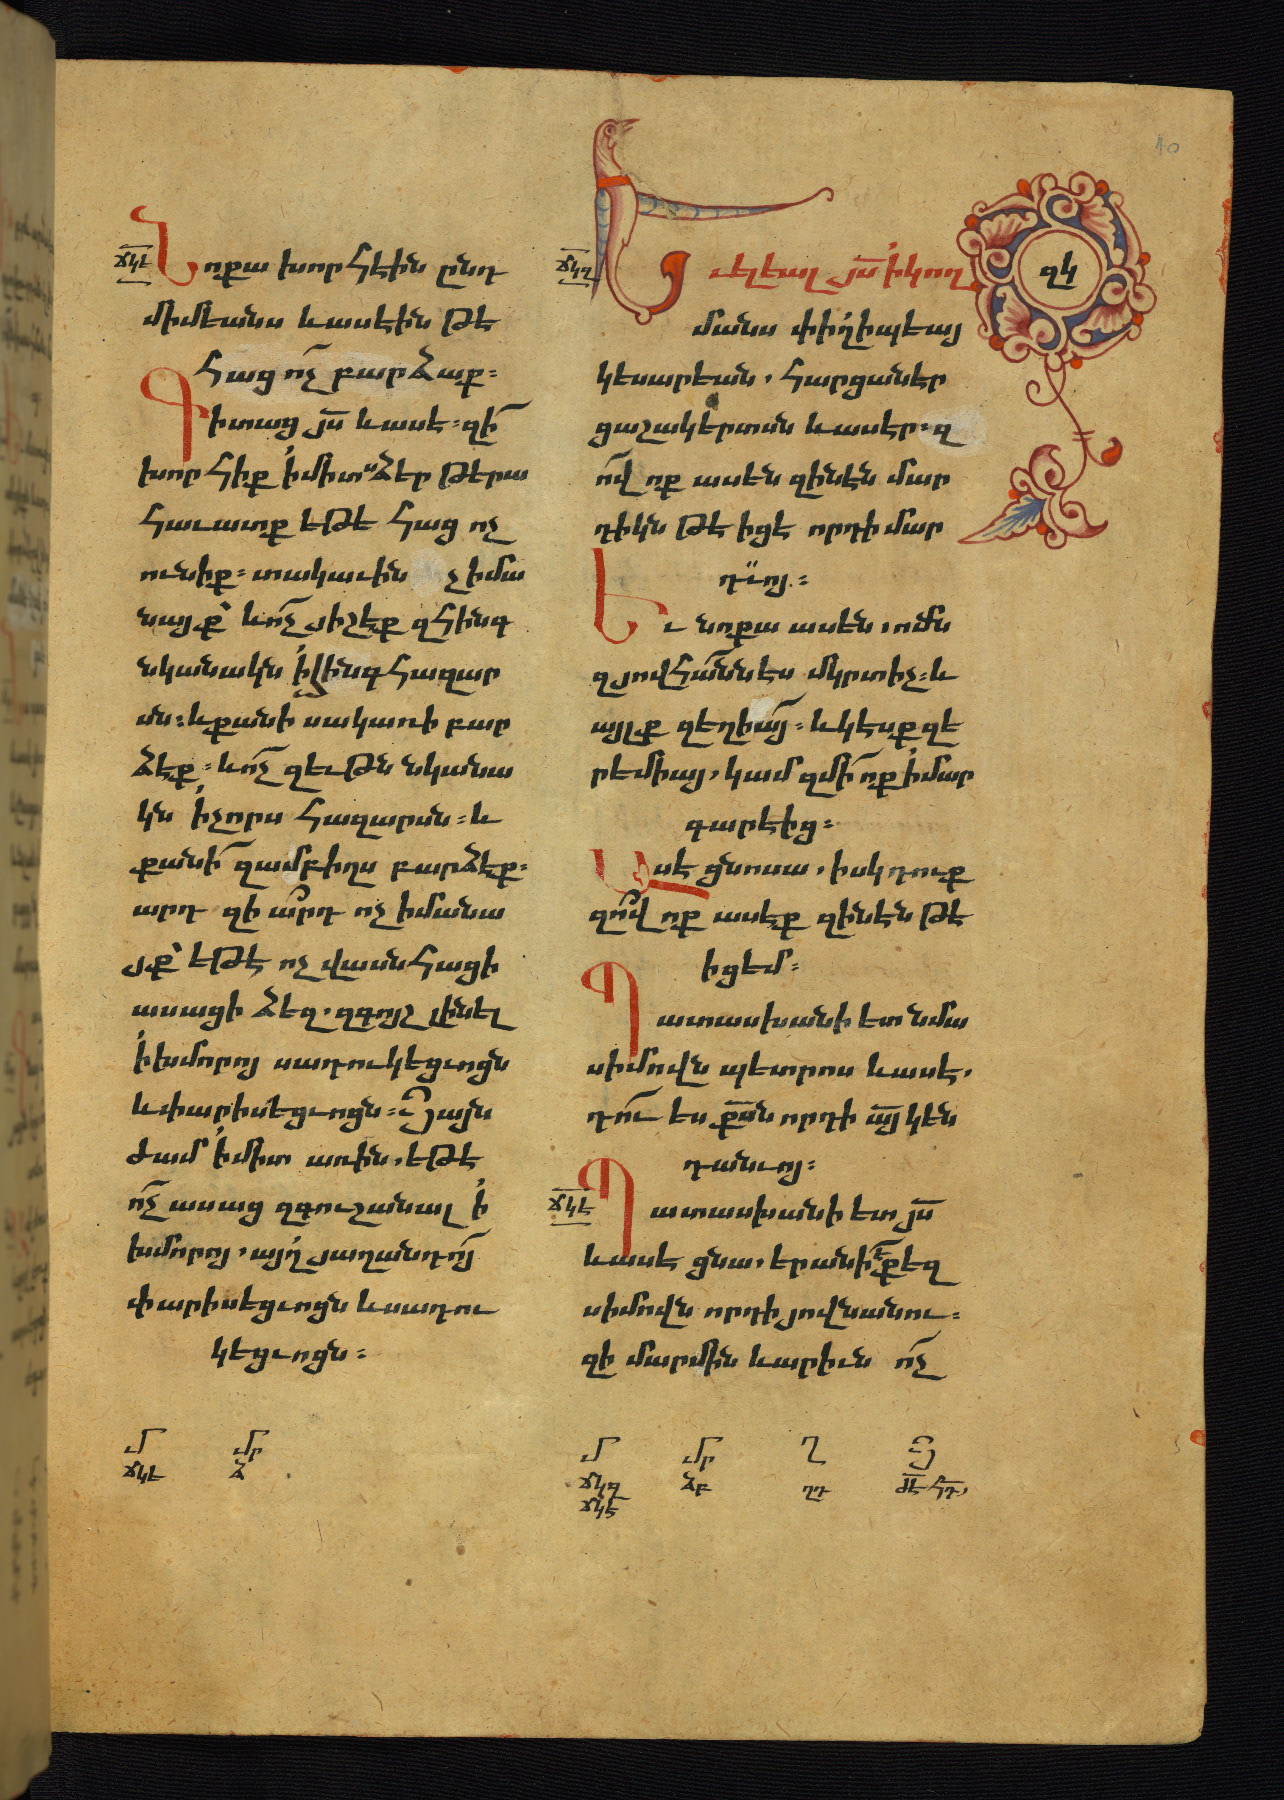 ճկե Նոքա խորհէին ընդ
միմեանս և ասէին թէ
հաց ո՛չ բարձաք։
Գիտաց յս և ասէ։ զի՞
խորհիք ի միտս ձեր թերա
հաւատք եթէ հաց ոչ
ունիք։ տակաւին չիմա
նայք՝ և ո՛չ յիշէք զհինգ
նկանակն ի հինգ հազար
սն։ և քանի՛ սակառի բար
ձէք։ և ո՛չ զեւթն նկանա
կն ի չորս հազարսն։ և
քանի՛ զամբիղս բարձէք։
արդ զի՞արդ ոչ իմանա
յք՝ եթէ ոչ վասն հացի
ասացի ձեզ. զգոյշ լինել
ի խմորոյ սադուկեցւոցն
և փարիսեցւոցն։ Յայն
ժամ ի միտ առին. եթէ
ո՛չ ասաց զգուշանալ ի
խմորոյ. այղ յաղանդոյ
փարիսեցւոցն և սադու
կեցւոցն։
մ մր
ճկե ձ
զկ
ճկզ Եկեալ յս ի կող
մանս փիղիպեայ
կեսարեան. հարցանէր
ցաշակերտսն և ասէր։ զ
ո՞վ ոք ասեն զինէն մար
դիկն թէ իցէ որդի մար
դոյ։
Եւ նոքա ասեն. ոմն
զյովհաննէս մկրտիչ։ և
այլք զեղիայ։ և կէսք զե
րեմիայ. կամ զմի ոք ի մար
գարէից։
Ասէ ցնոսա. իսկ դուք
զո՞վ ոք ասէք զինէն թէ
իցեմ։
Պատասխանի ետ նմա
սիմովն պետրոս և ասէ.
դու ես քսն որդի այ կեն
դանւոյ։
ճկէ Պատասխանի ետ յս
և ասէ ցնա. երանի՛ է քեզ
սիմովն որդի յովնանու։
զի մարմին և արիւն ո՛չ
մ մր ղ յ
ճկզ ձբ ղդ ժէ հդ
ճկէ